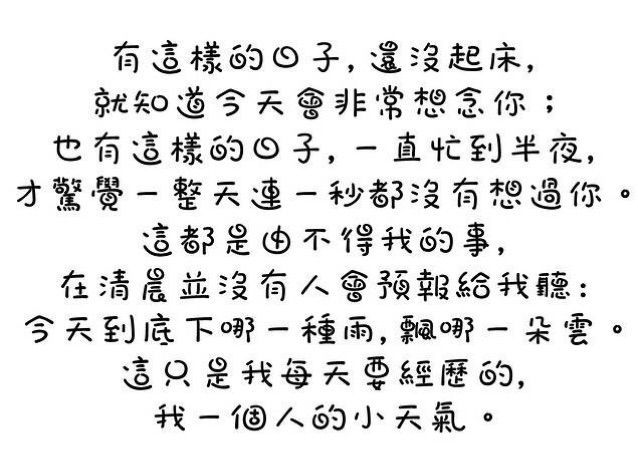 有這樣的日子, 還沒起床,
就知道今天會非常想念你；
也有這樣的日子, 一直忙到半夜,
才驚覺一整天連一秒都沒有想過你。
這都是由不得我的事,
在清晨並沒有人會預報給我聽:
今天到底下哪一種雨, 飄哪一朵雲。
這只是我每天要經歷的,
我一個人的小天氣。